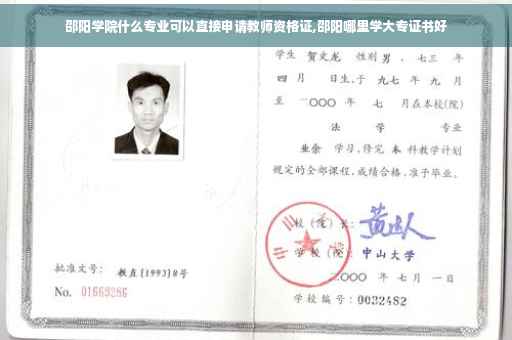 邵阳学院什么专业可以直接申请教师资格证,邵阳哪里学大专证书好
学生 贺文龙 性别 男 、七三 年
四 月 日生,于 九七 年 九 月
至 二〇〇〇 年 七 月在本校(院)
法 学 专业
业余 学习,修完 本 科教学计划
规定的全部课程,成绩合格,准予毕业。
校(院)长:
学校(院): 中山大学
批准文号: 教直[1993]8号
二〇〇〇 年 七 月 一 日
No. 01669286
学校编号: 0032482